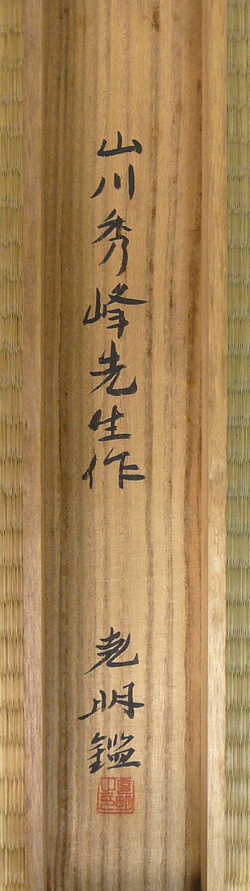 山川秀峰先生作
尭明鑑